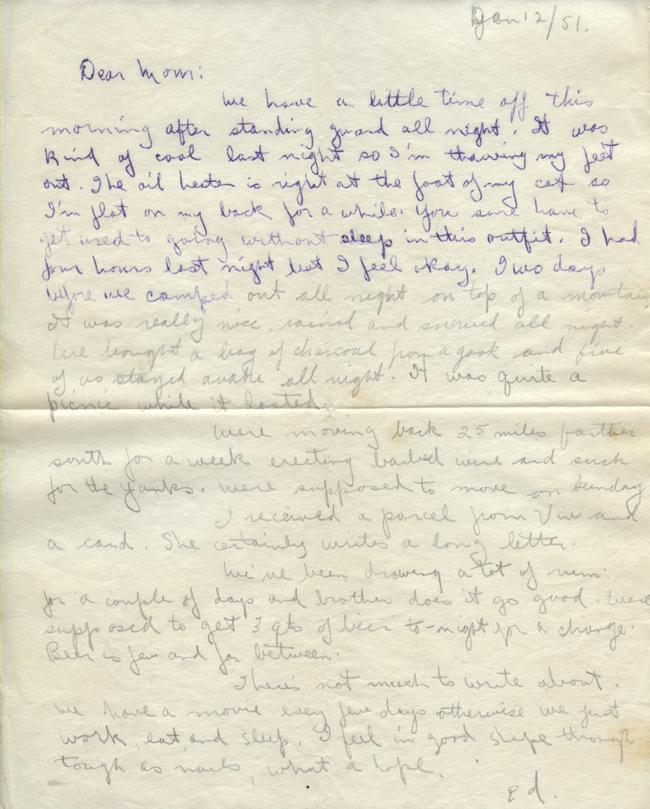 Jan 12/51.
Dear Mom:
We have a little time off this
morning after standing guard all night. It was
kind of cool last night so I'm thawing my feet
out. The oil heater is right at the foot of my cot so
I'm flat on my back for a while. You sure have to
get used to going without sleep in this outfit. I had
four hours last night but I feel okay. Two days
before we camped out all night on top of a mountain
It was really nice, rained and snowed all night.
We bought a bag of charcoal from a gook and five
of us stayed awake all night. It was quite a
picnic while it lasted.
We're moving back 25 miles farther
south for a week erecting barbed wire and such
for the Yanks. We're supposed to move on Sunday
I received a parcel from Viv and
a card. She certainly writes a long letter.
We've been drawing a lot of rum
for a couple of days and brother does it go good. We're
supposed to get 3 qts of beer to-night for a change.
Beer is few and far between.
There's not much to write about.
We have a movie every few days otherwise we just
work, eat, and sleep. I feel in good shape through
tough as nails, what a hope.
Ed.